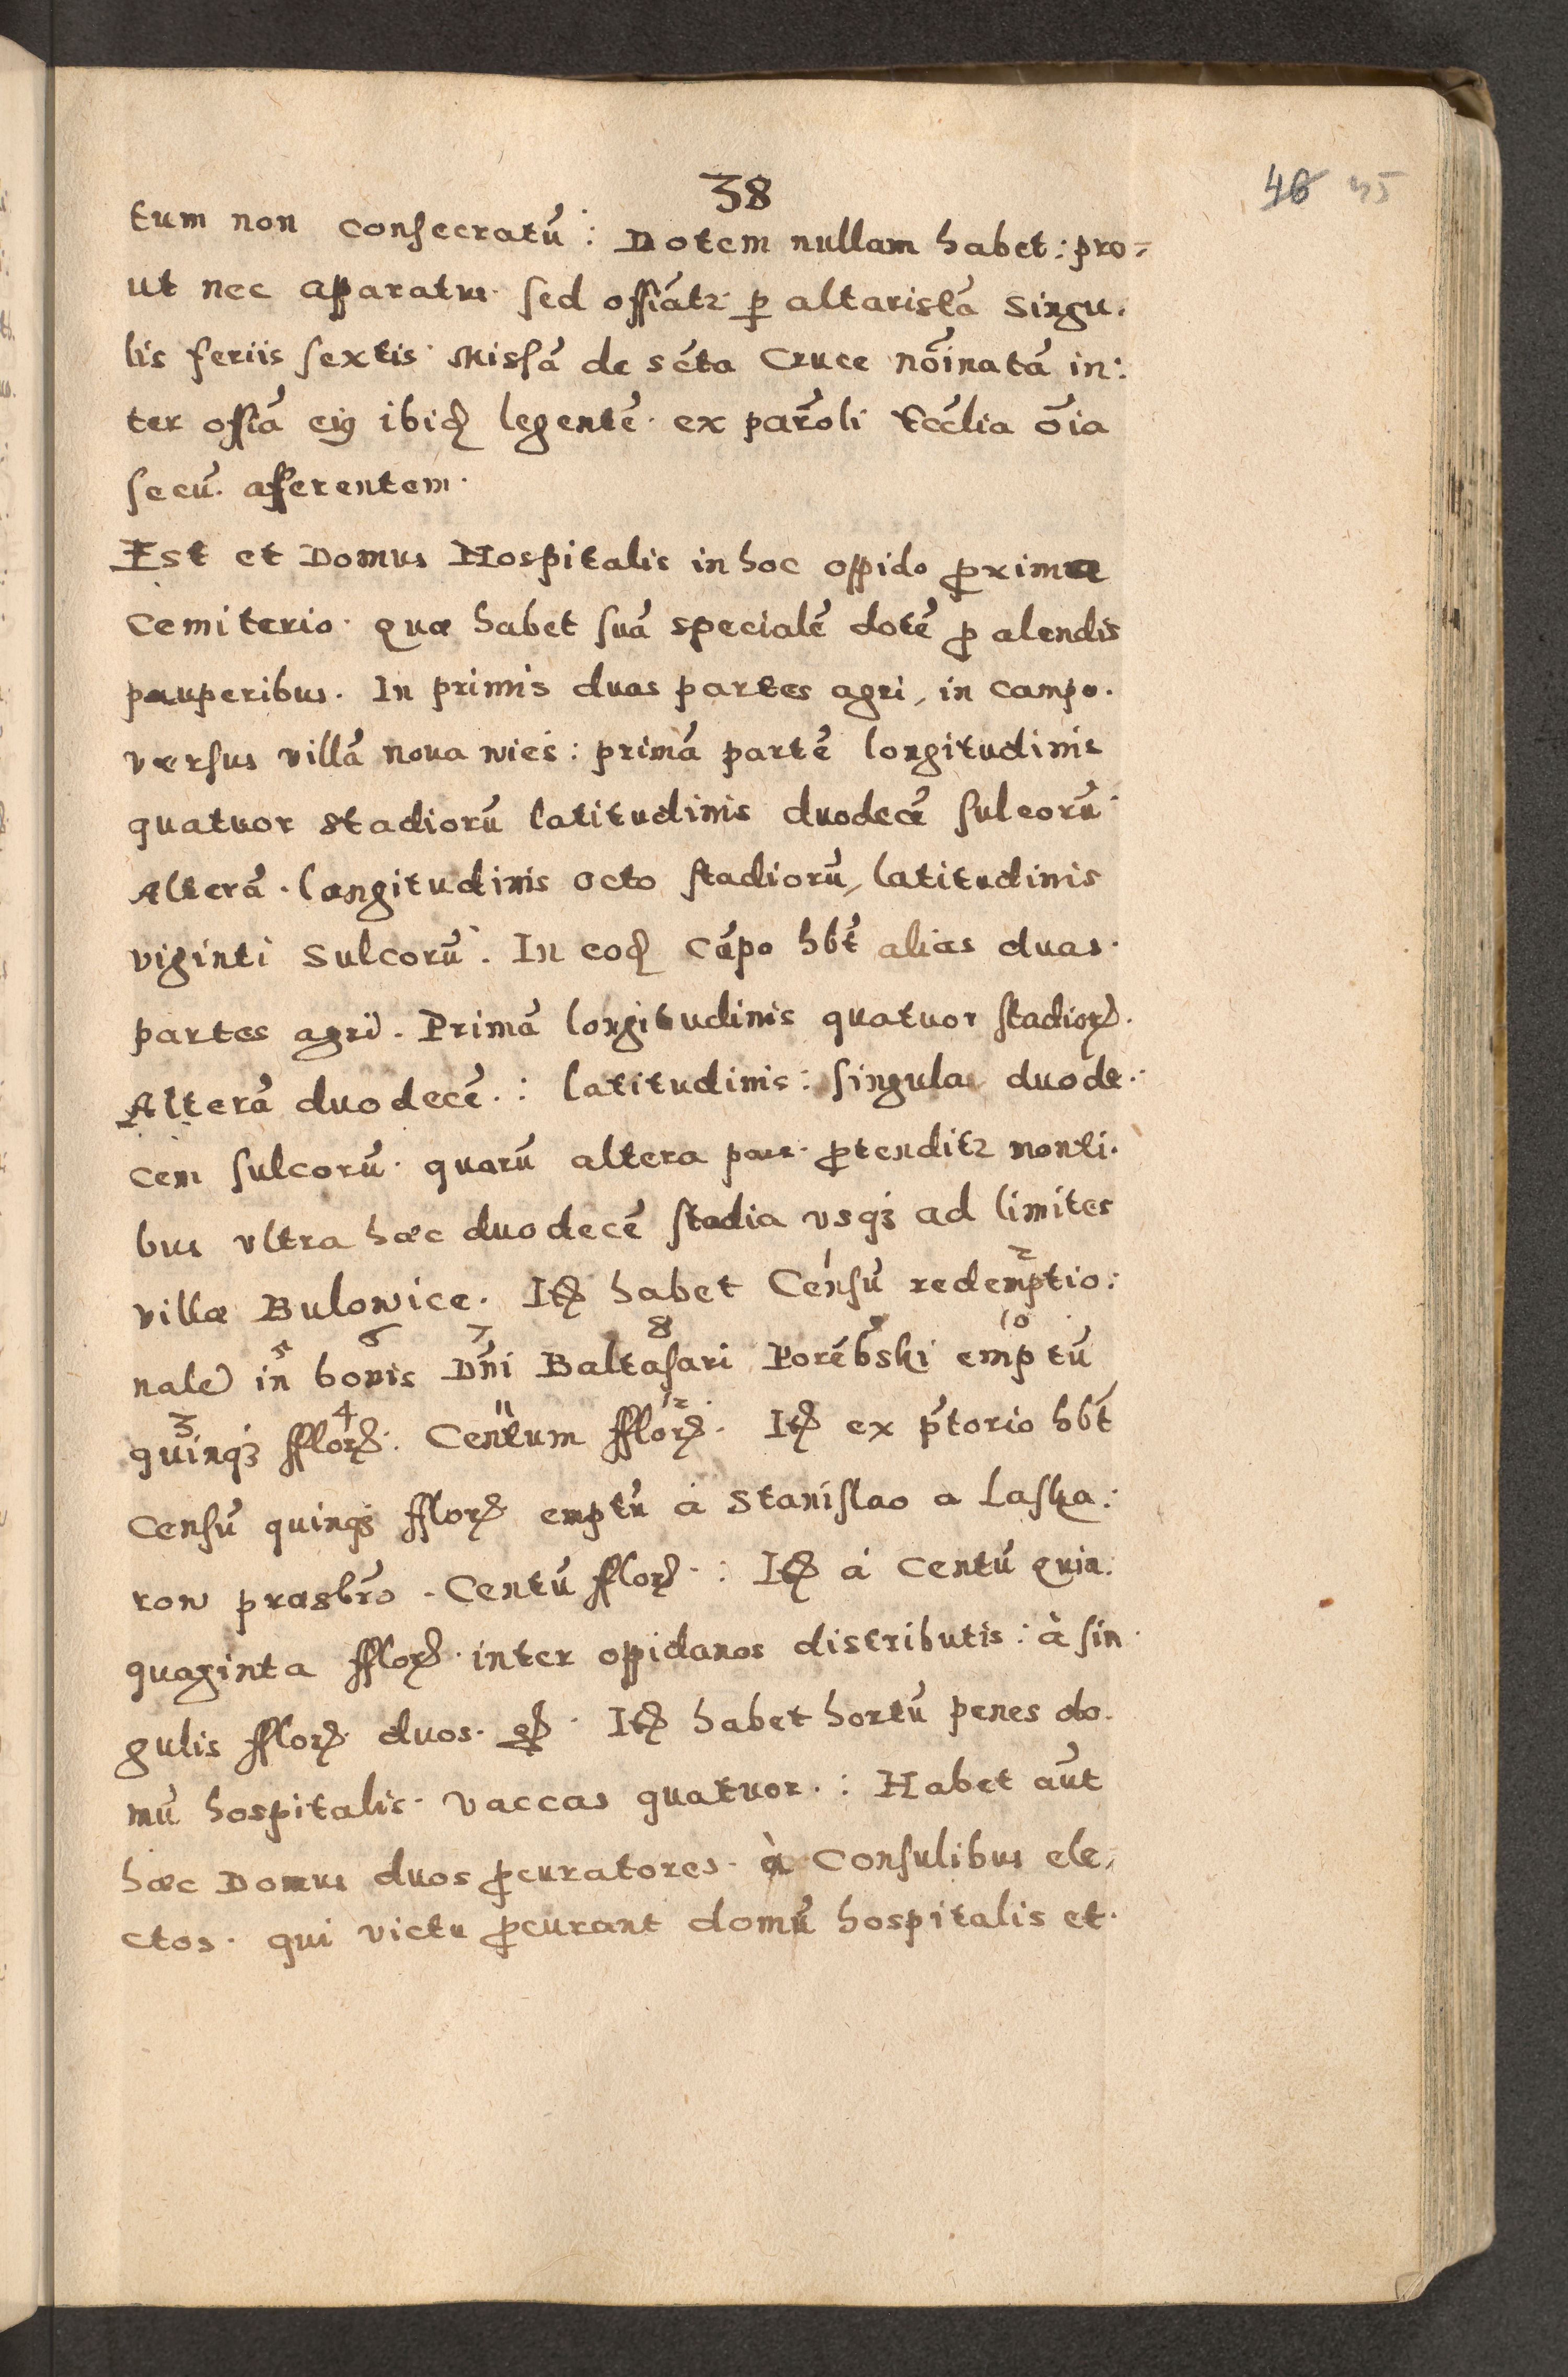 38
46 35
tum non consecratū : Dotem nullam habet : pro=
ut nec apparatus. sed offiāt2 ꝑ altaristā singu.
lis feriis sextis Missā de sc̄ta Cruce nōinatā in:
ter offiā eiꝰ ibid̄ legentē. ex par̄oli Eccl̄ia ōia
secū. afferentem.
Est et Domus Hospitalis in hoc oppido ꝓximæ
Cemiterio. quæ habet suā specialē dotē ꝓ alendis
pauperibus. In primis duas partes agri, in campo.
versus villā nova wieś : primā partē longitudinis
quatuor stadiorū latitudinis duodecē sulcorū
Alterā. longitudinis octo stadiorū, latitudinis
viginti sulcorū. In eod̄ cāpo hb̄t alias duas.
partes agri. Primā longitudinis quatuor stadioꝝ.
Alterā duodecē. : latitudinis : singulæ duode.
cem sulcorū. quarū altera pars. ꝓtendit2 monti.
bus ultra hæc duodecē stadia usqꝫ ad limites
villæ Bulowice. Itē habet Censū 1 redemptio: 2
nale in 5 bonis 6 Dn̄i 7 Baltasari 8 Porēbski 9 emptū 10
quinqꝫ 3 fflorꝝ 4. Centum 11 fflorꝝ 12. Itē ex p̄torio hb̄t
Censū quinqꝫ fflorꝝ emptū à Stanislao a Laska:
ron præsbr̄o. Centū fflorꝝ. : Itē à Centū quin.
quaginta fflorꝝ. inter oppidanos distributis : à sin.
gulis fflorꝝ duos. Itē habet hortū penes do.
mū hospitalis. vaccas quatuor. : Habet aūt
hæc Domus duos ꝓcuratores. à Consulibus ele,
ctos. qui victu ꝓcurant domū hospitalis et.